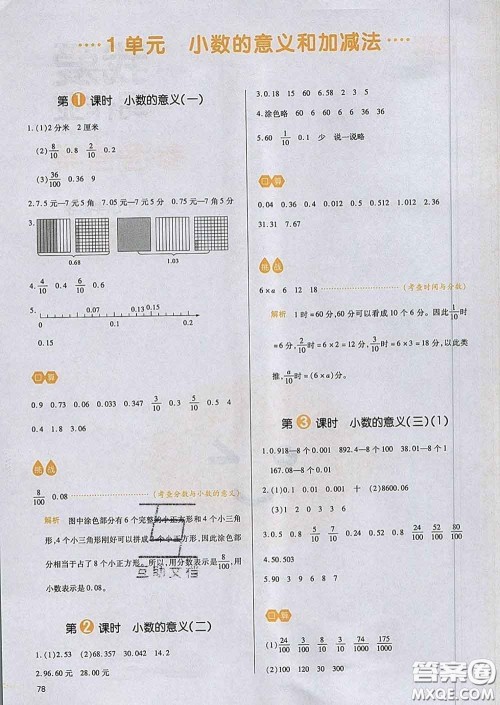 ····1单元 小数的意义和加减法····
第1课时 小数的意义(一)
1.(1)2分米 2厘米
(2)8/10 0.8 2/10 0.2
(3)36/100 0.36 9
2.7.5元—7元5角 7.05元—7元5分 0.75元—7角5分
3.
0.68 1.03
4.4/10 0.4 3/10 0.3
5.
0 0.1 0.2
0.15
口算
0.9 0.73 0.9 0.47 33/100 3/10 0.5 0.4
0.4 0.9 0.38
挑战
8/100 0.08 (考查分数与小数的意义)
解析 图中涂色部分有6个完整的小正方形和4个小三角
形,4个小三角形刚好可以拼成2个小正方形,因此涂色部分
相当于占了8个小正方形。所以,用分数表示是8/100,用
小数表示是0.08。
互助文档
第2课时 小数的意义(二)
1.(1)2.53 (2)68.357 30.042 14.2
2.96.60元 28.00元
78
3.0.18 0.15 2.4 0.32
4.涂色略
5.60 1/10 0.1 少 说一说略
口算
0.04 0.36 0.4 0.012 0.5 0.512 1.05 2.36
31.31 7.67
挑战
6×a 6 12 18 (考查时间与分数)
解析 1时=60分,60分可以看成10个6分。因此1/10时
=6分,2/10时=(6×2)分,3/10时=(6×3)分,以此类
推,a/10时=(6×a)分。
第3课时 小数的意义(三)(1)
1.0.918—8个0.001 892.4—8个100 38.01—8个1
167.08—8个0.01
2.(1)0.01 0.001 十 (2)8600.06
4.50.503
5.220 3 9 7 8
口算
答案圈
MXQE.COM